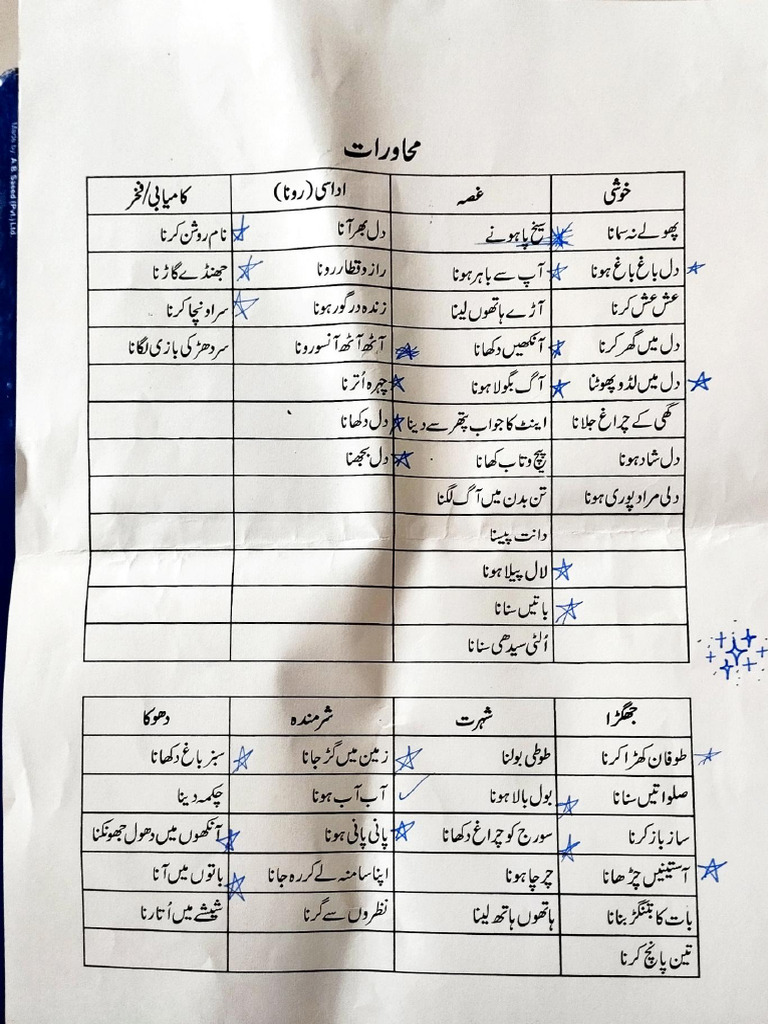 محاورات
خوشی غصہ اداسی (رونا) کامیابی/فخر
پھولے نہ سمانا سیخ پا ہونے دل بھر آنا نام روشن کرنا
دل باغ باغ ہونا آپ سے باہر ہونا رازوقطار رونا جھنڈے گاڑنا
عش عش کرنا آڑے ہاتھوں لینا زندہ درگور ہونا سر اونچا کرنا
دل میں گھر کرنا آنکھیں دکھانا آٹھ آٹھ آنسو رونا سر دھڑ کی بازی لگانا
دل میں لڈو پھوٹنا آگ بگولا ہونا چہرہ اُترنا
گھی کے چراغ جلانا اینٹ کا جواب پتھر سے دینا دل دکھانا
دل شاد ہونا پیچ و تاب کھانا دل بجھنا
دلی مراد پوری ہونا تن بدن میں آگ لگنا
دانت پیسنا
لال پیلا ہونا
باتیں سنانا
اُلٹی سیدھی سنانا
جھگڑا شہرت شرمندہ دھوکا
طوفان کھڑا کرنا طوطی بولنا زمین میں گڑ جانا سبز باغ دکھانا
صلواتیں سنانا بول بالا ہونا آب آب ہونا چکمہ دینا
ساز باز کرنا سورج کو چراغ دکھانا پانی پانی ہونا آنکھوں میں دھول جھونکنا
آستینیں چڑھانا چرچا ہونا اپنا سامنہ لے کر رہ جانا باتوں میں آنا
بات کا بتنگڑ بنانا ہاتھوں ہاتھ لینا نظروں سے گرنا شیشے میں اُتارنا
تین پانچ کرنا